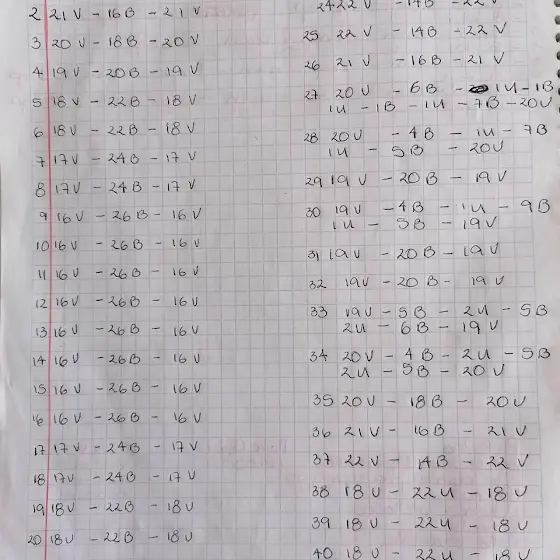 2 21V - 16B - 21V
3 20V - 18B - 20V
4 19V - 20B - 19V
5 18V - 22B - 18V
6 18V - 22B - 18V
7 17V - 24B - 17V
8 17V - 24B - 17V
9 16V - 26B - 16V
10 16V - 26B - 16V
11 16V - 26B - 16V
12 16V - 26B - 16V
13 16V - 26B - 16V
14 16V - 26B - 16V
15 16V - 26B - 16V
16 16V - 26B - 16V
17 17V - 24B - 17V
18 17V - 24B - 17V
19 18V - 22B - 18V
20 18V - 22B - 18V
24 22V - 14B - 22V
25 22V - 14B - 22V
26 21V - 16B - 21V
27 20V - 6B - 1U - 1B
1U - 1B - 1U - 7B - 20V
28 20V - 4B - 1U - 7B
1U - 5B - 20V
29 19V - 20B - 19V
30 19V - 4B - 1U - 9B
1U - 5B - 19V
31 19V - 20B - 19V
32 19V - 20B - 19V
33 19V - 5B - 2U - 5B
2U - 6B - 19V
34 20V - 4B - 2U - 5B
2U - 5B - 20V
35 20V - 18B - 20V
36 21V - 16B - 21V
37 22V - 14B - 22V
38 18V - 22U - 18V
39 18V - 22U - 18V
40 18V - 22U - 18V